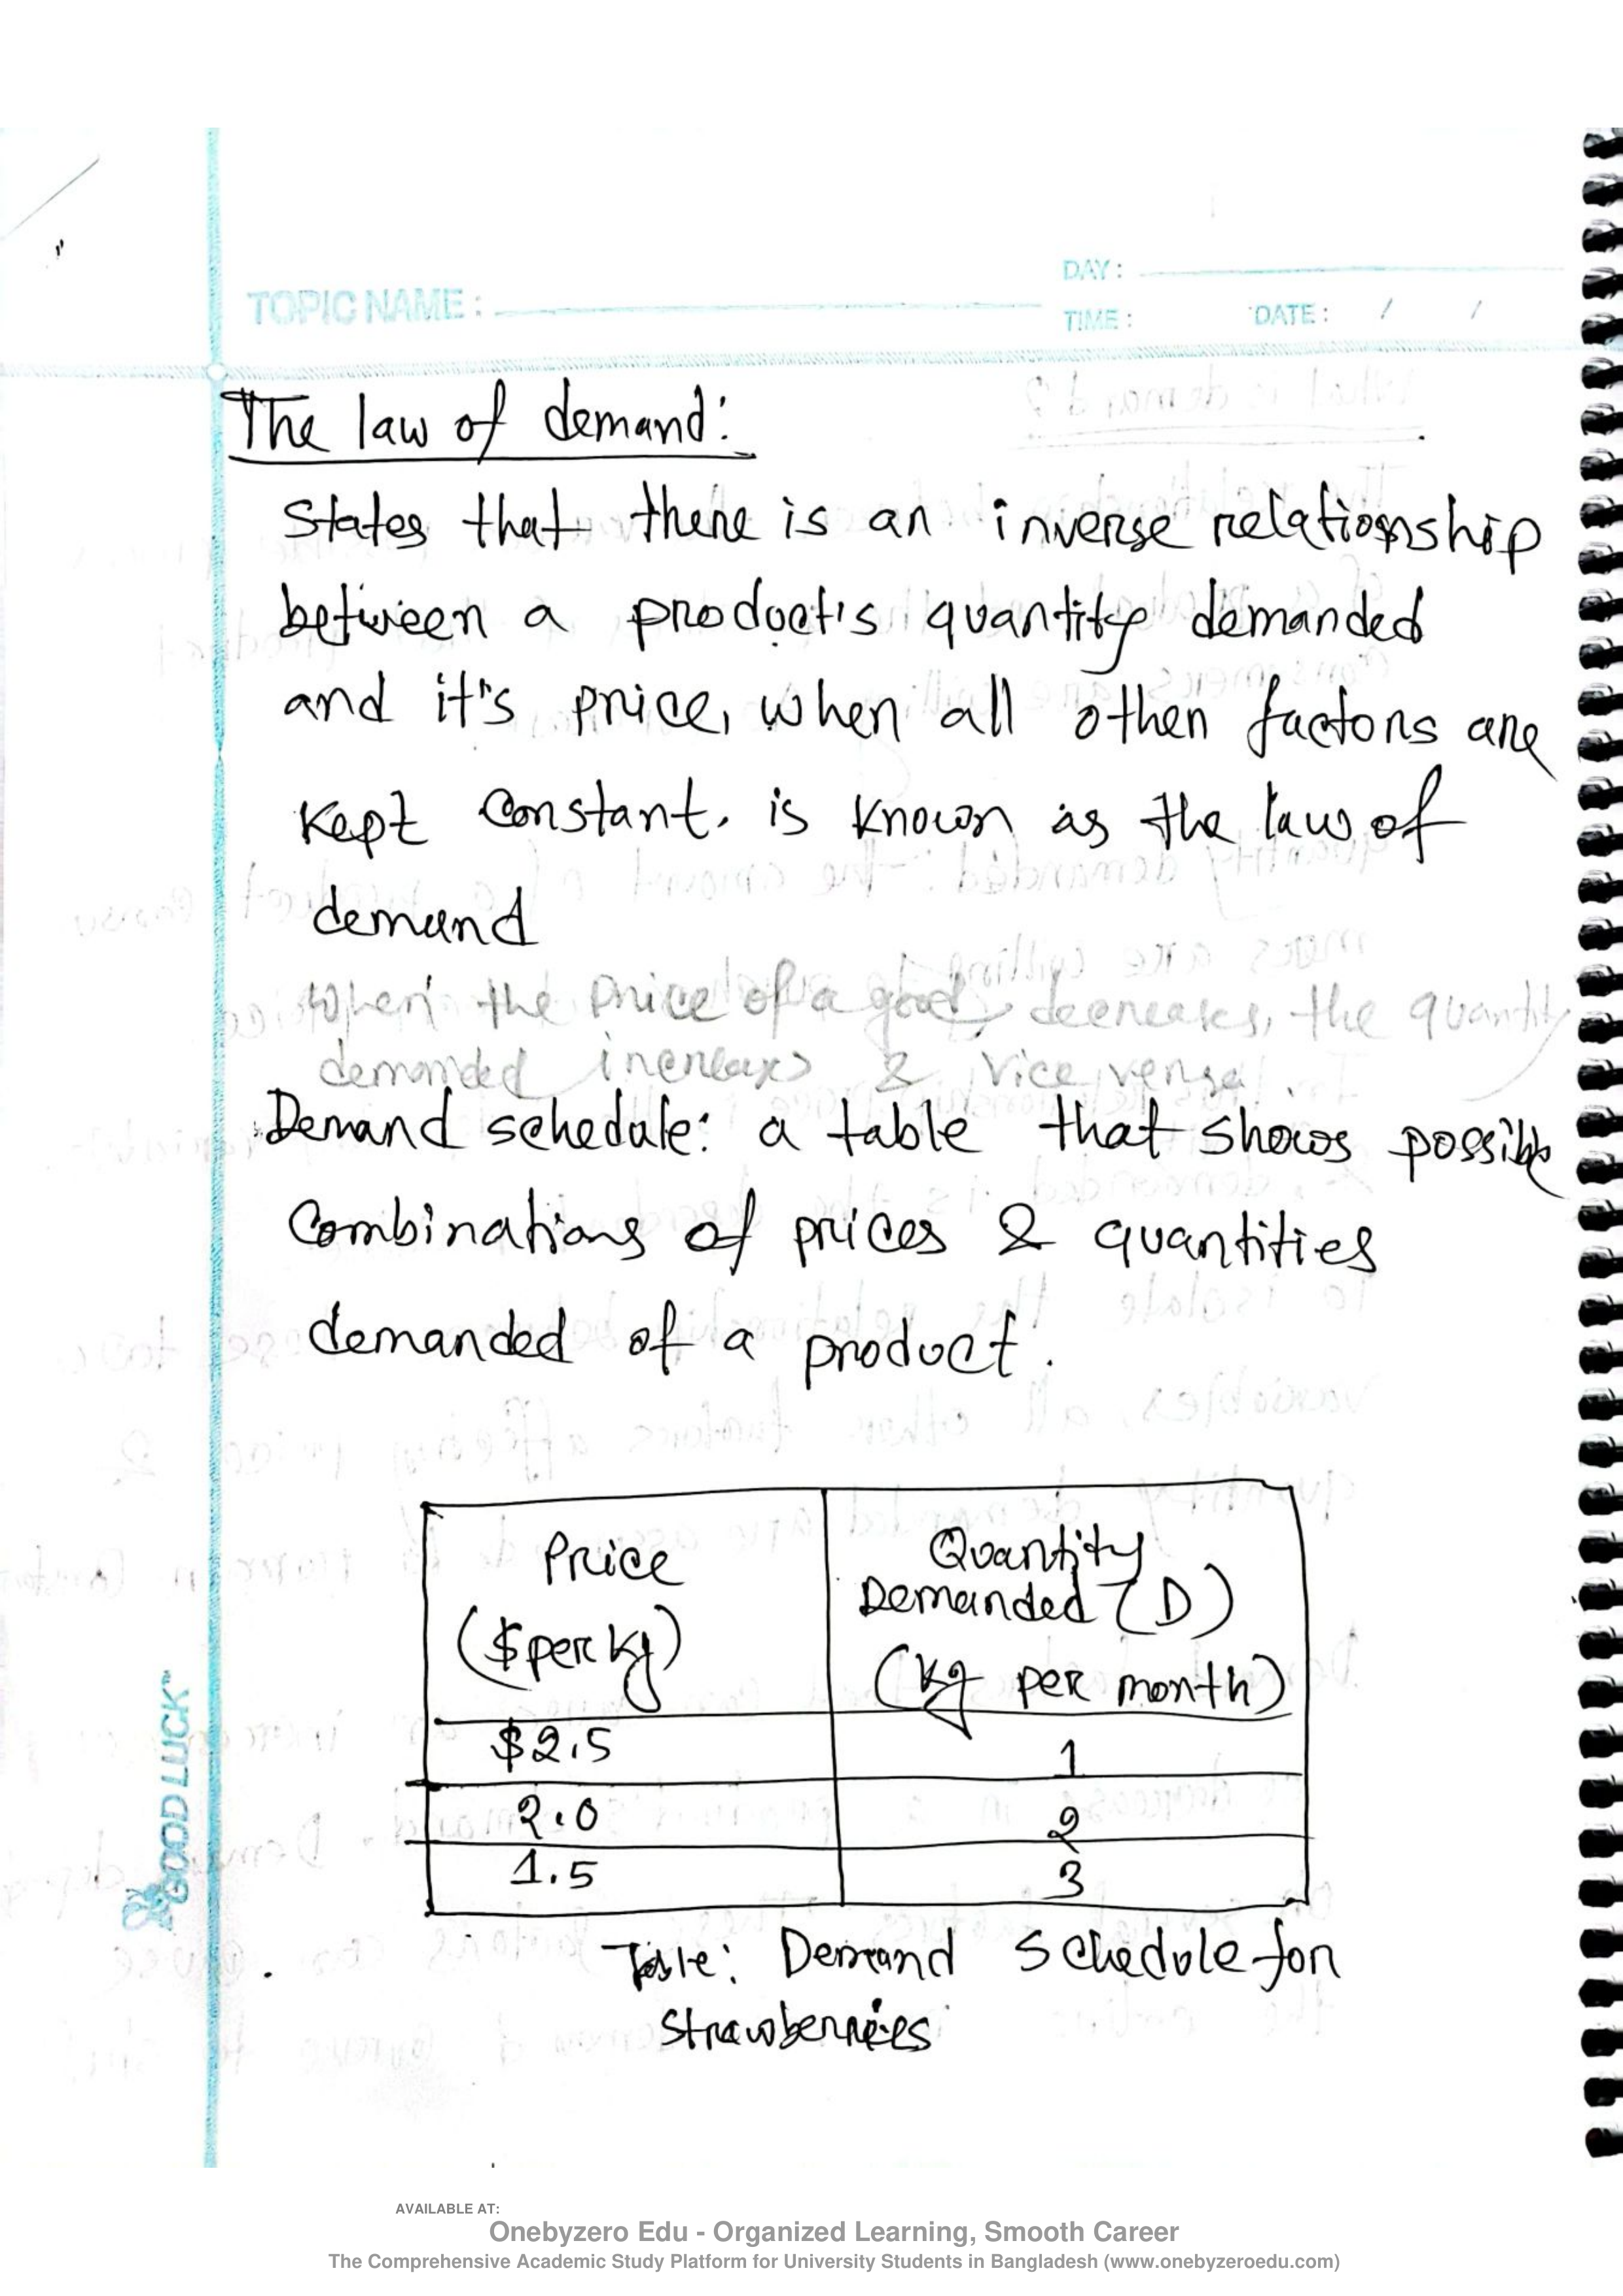 DAY:
TOPIC NAME:
TIME: DATE: / /
The law of demand:
States that there is an inverse relationship
between a product's quantity demanded
and it's price, when all other factors are
kept constant. is known as the law of
demand
When the price of a good decreases, the quantity
demanded increases & vice versa.
Demand schedule: a table that shows possible
combinations of prices & quantities
demanded of a product.
Price
($ per kg)
Quantity
Demanded (D)
(kg per month)
$2.5 1
2.0 2
1.5 3
Table: Demand schedule for
strawberries
GOOD LUCK™
AVAILABLE AT:
Onebyzero Edu - Organized Learning, Smooth Career
The Comprehensive Academic Study Platform for University Students in Bangladesh (www.onebyzeroedu.com)